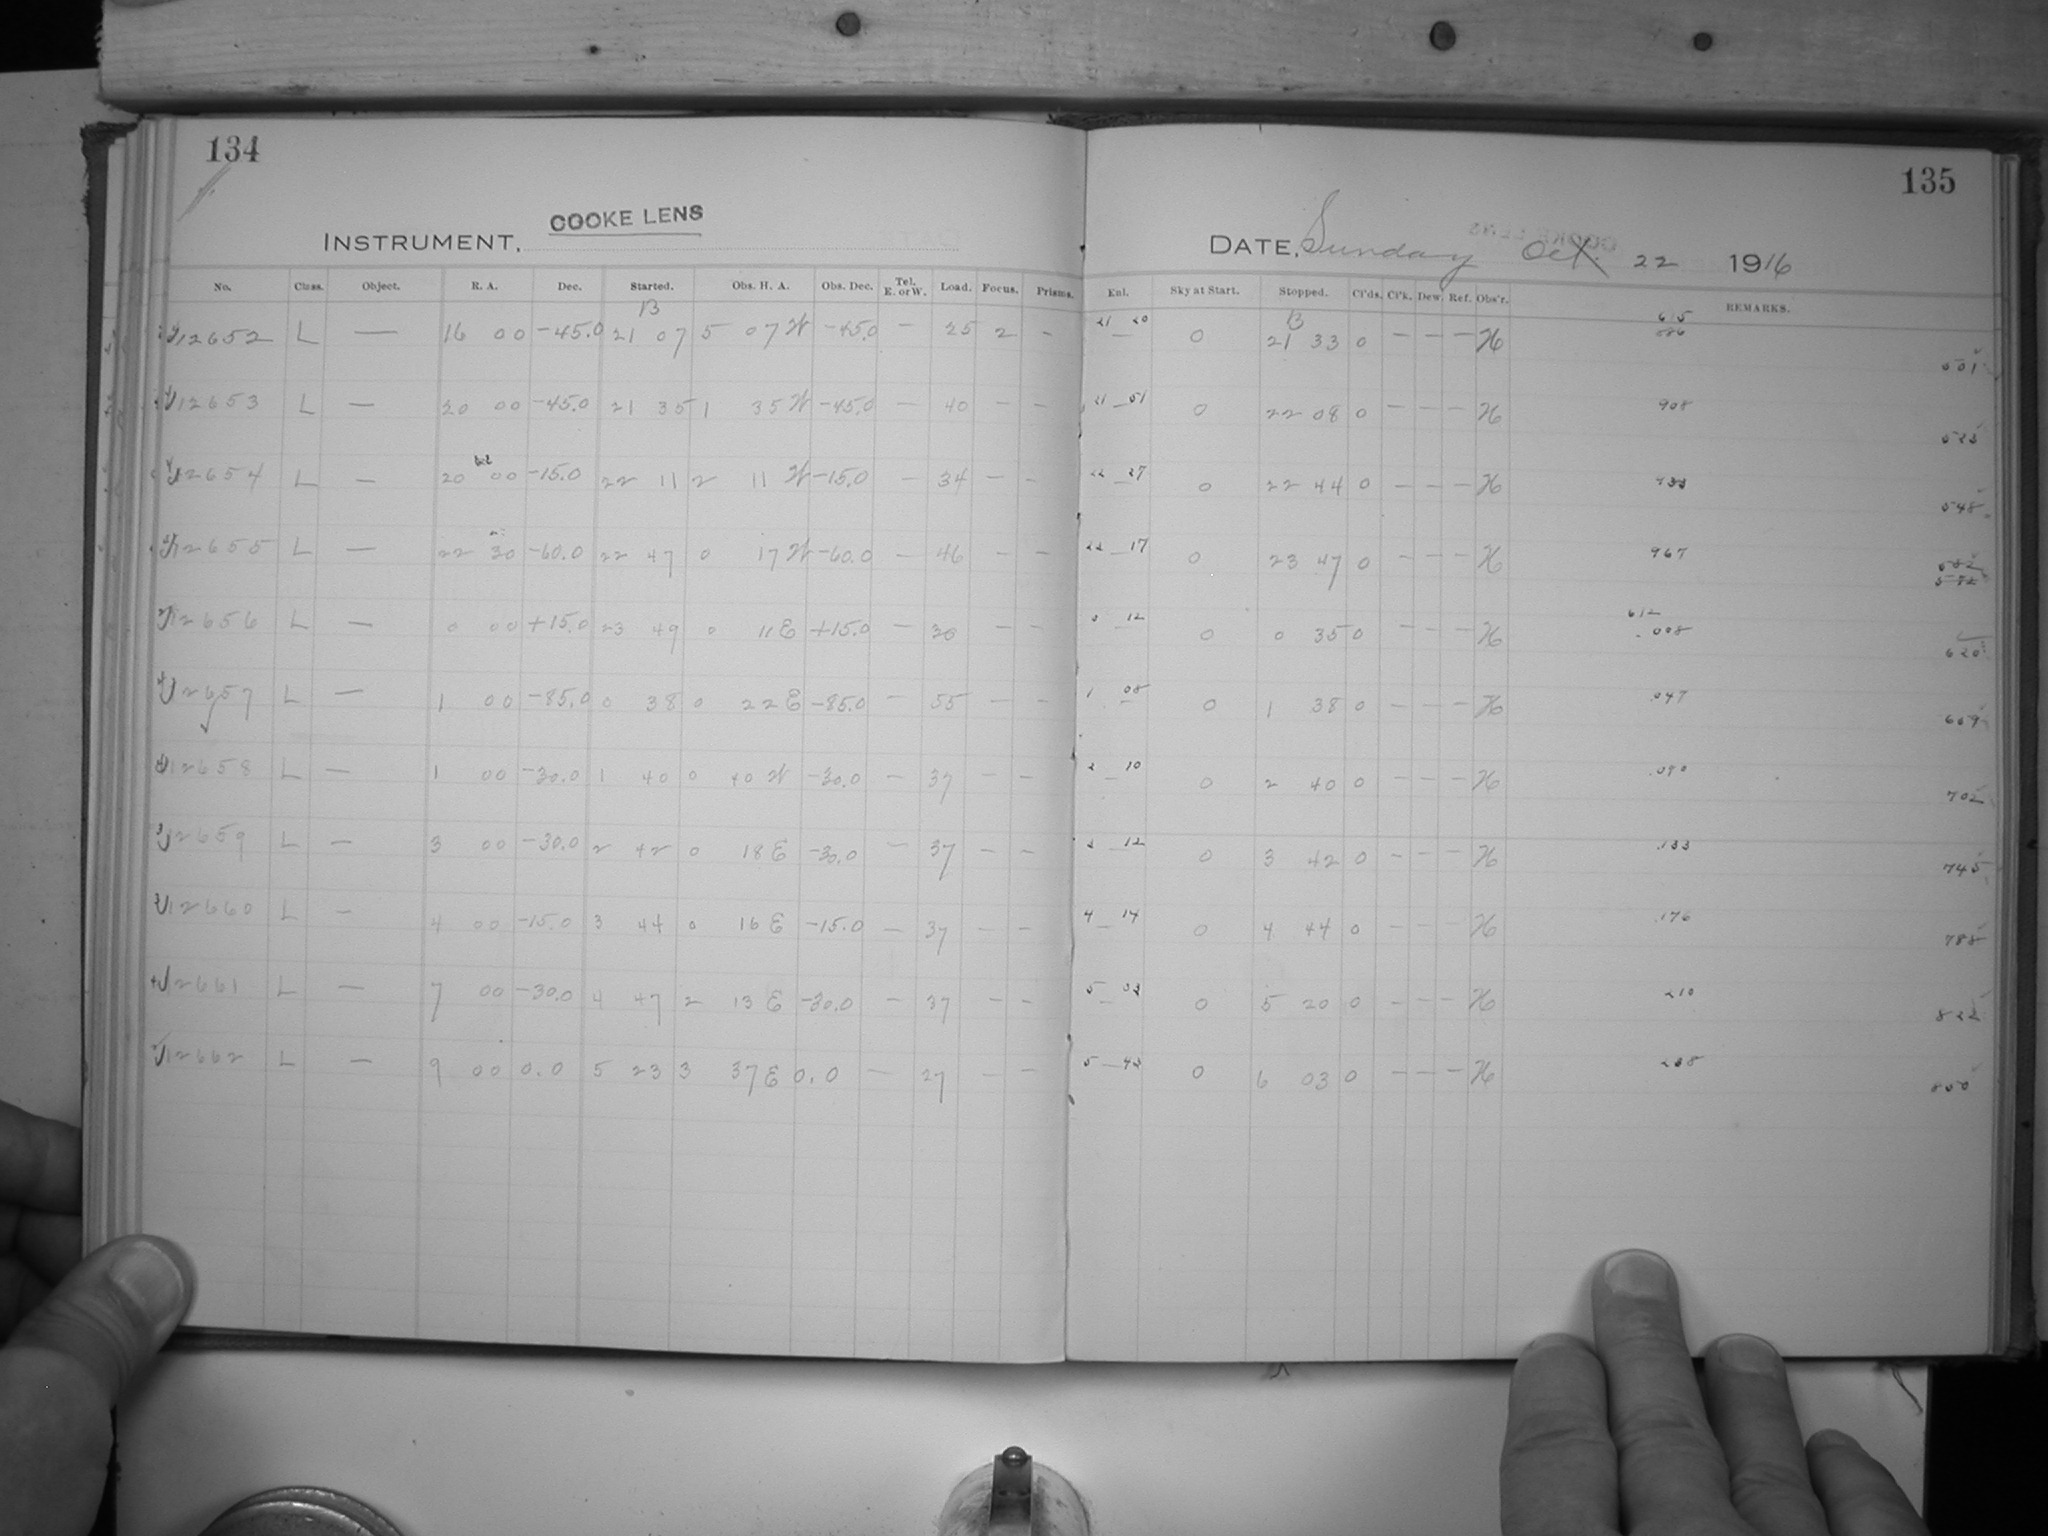 134
135
INSTRUMENT, COOKE LENS
DATE, Sunday Oct. 22 1916
No. Class. Object. R. A. Dec. Started. Obs. H. A. Obs. Dec. Tel. E. or W. Load. Focus. Prisms. Exl. Sky at Start. Stopped. Cl'ds. Cl'k. Dew. Ref. Obs'r. REMARKS.
B B 615
12652 L — 16 00 -45.0 21 07 5 07 W -45.0 — 25 2 - 21 20 0 21 33 0 — — — H 886
501
12653 L — 20 00 -45.0 21 35 1 35 W -45.0 — 40 - - 21 51 0 22 08 0 — — — H 908
523
12654 L — 20 00 -15.0 22 11 2 11 W -15.0 — 34 - - 22 27 0 22 44 0 — — — H 933
548
12655 L — 22 30 -60.0 22 47 0 17 W -60.0 — 46 - - 22 17 0 23 47 0 — — — H 967
582
612
12656 L — 0 00 +15.0 23 49 0 11 E +15.0 — 36 - - 0 12 0 0 35 0 — — — H .008
620
12657 L — 1 00 -85.0 0 38 0 22 E -85.0 — 55 - - 1 08 0 1 38 0 — — — H .047
659
12658 L — 1 00 -30.0 1 40 0 40 W -30.0 — 37 - - 2 10 0 2 40 0 — — — H .090
702
12659 L — 3 00 -30.0 2 42 0 18 E -30.0 — 37 - - 3 12 0 3 42 0 — — — H .133
745
12660 L — 4 00 -15.0 3 44 0 16 E -15.0 — 37 - - 4 14 0 4 44 0 — — — H .176
788
12661 L — 7 00 -30.0 4 47 2 13 E -30.0 — 37 - - 5 03 0 5 20 0 — — — H 210
822
12662 L — 9 00 0.0 5 23 3 37 E 0.0 — 27 - - 5 43 0 6 03 0 — — — H 238
850